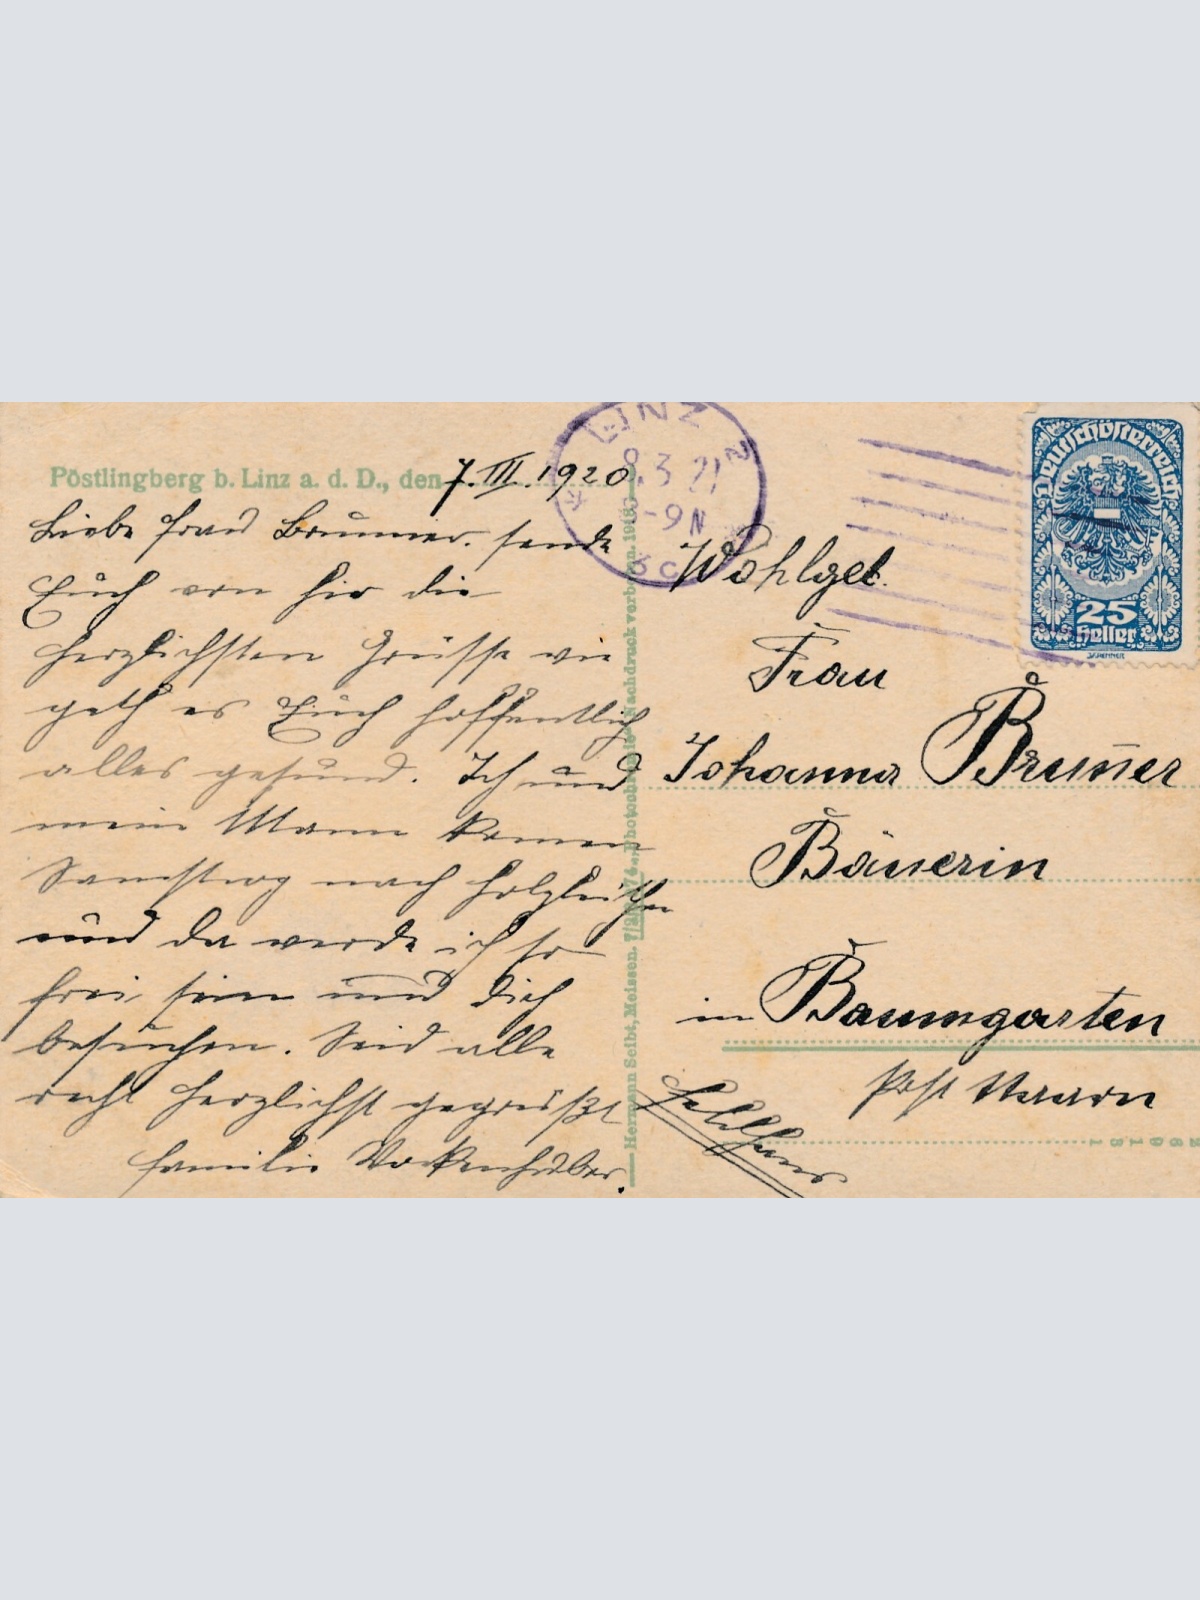 Pöstlingberg b. Linz a. d. D., den 7. III. 1920
Liebe Frau Brunner. sende
Euch von hir die
herzlichsten Grüsse wie
geth es Euch hoffentlich
alles gesund. Ich und
mein Mann komen
Samstag nach Holzleithn
und da werde ich so
frei sein und dich
besuchen. Seid alle
recht herzlichst gegrüßt
Familie
LINZ 2
8.3.21
-9N
Deutschösterreich
25
Heller
Wohlgeb.
Frau
Johanna Bruner
Bäuerin
in Baumgarten
Post
Hermann Seibt, Meissen.
Nachdruck verboten. 1918